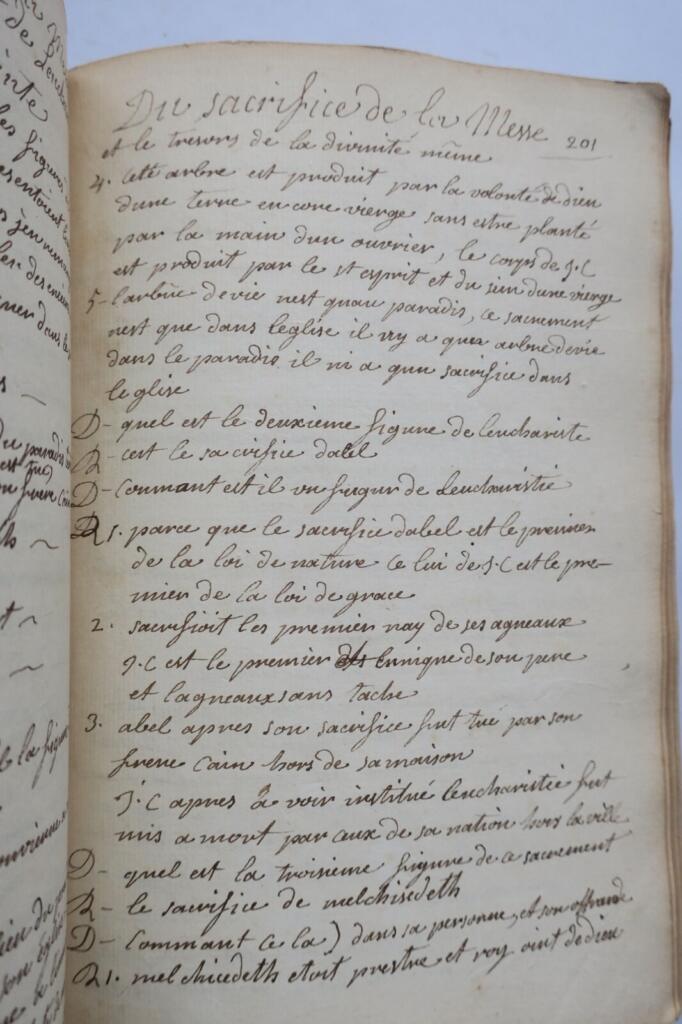 Du sacrifice de la Messe
201
et le tresors de la divinité même
4. cete arbre est produit par la volonté de dieu
dune terre en core vierge sans estre planté
par la main dun ouvrier, le corps de J.C
est produit par le st esprit et du sein dune vierge
5 - larbre de vie nest quau paradis, ce sacrement
nest que dans leglise il ny a quun arbre de vie
dans le paradis il ni a qun sacrifice dans
leglise
D - quel est le deuxieme figure de leuchariste
R - cest le sacrifice dabel
D - commant est il un figur de leucharistie
R 1. parce que le sacrifice dabel est le premier
de la loi de nature ce lui de J.C est le pre-
mier de la loi de grace
2. sacrifioit les premier nay de ses agneaux
J.C est le premier et unique de son pere
et lagneaux sans tache
3. abel apres son sacrifice fut tué par son
frere Cain hors de sa maison
J.C apres a voir institué leucharistie fut
mis a mort par ceux de sa nation hors la ville
D - quel est la troisieme figure de ce sacrement
R - le sacrifice de melchisedeth
D - Commant ce la) dans sa personne, et son offrande
R 1. melchicedeth etoit prestre et roy oint de dieu